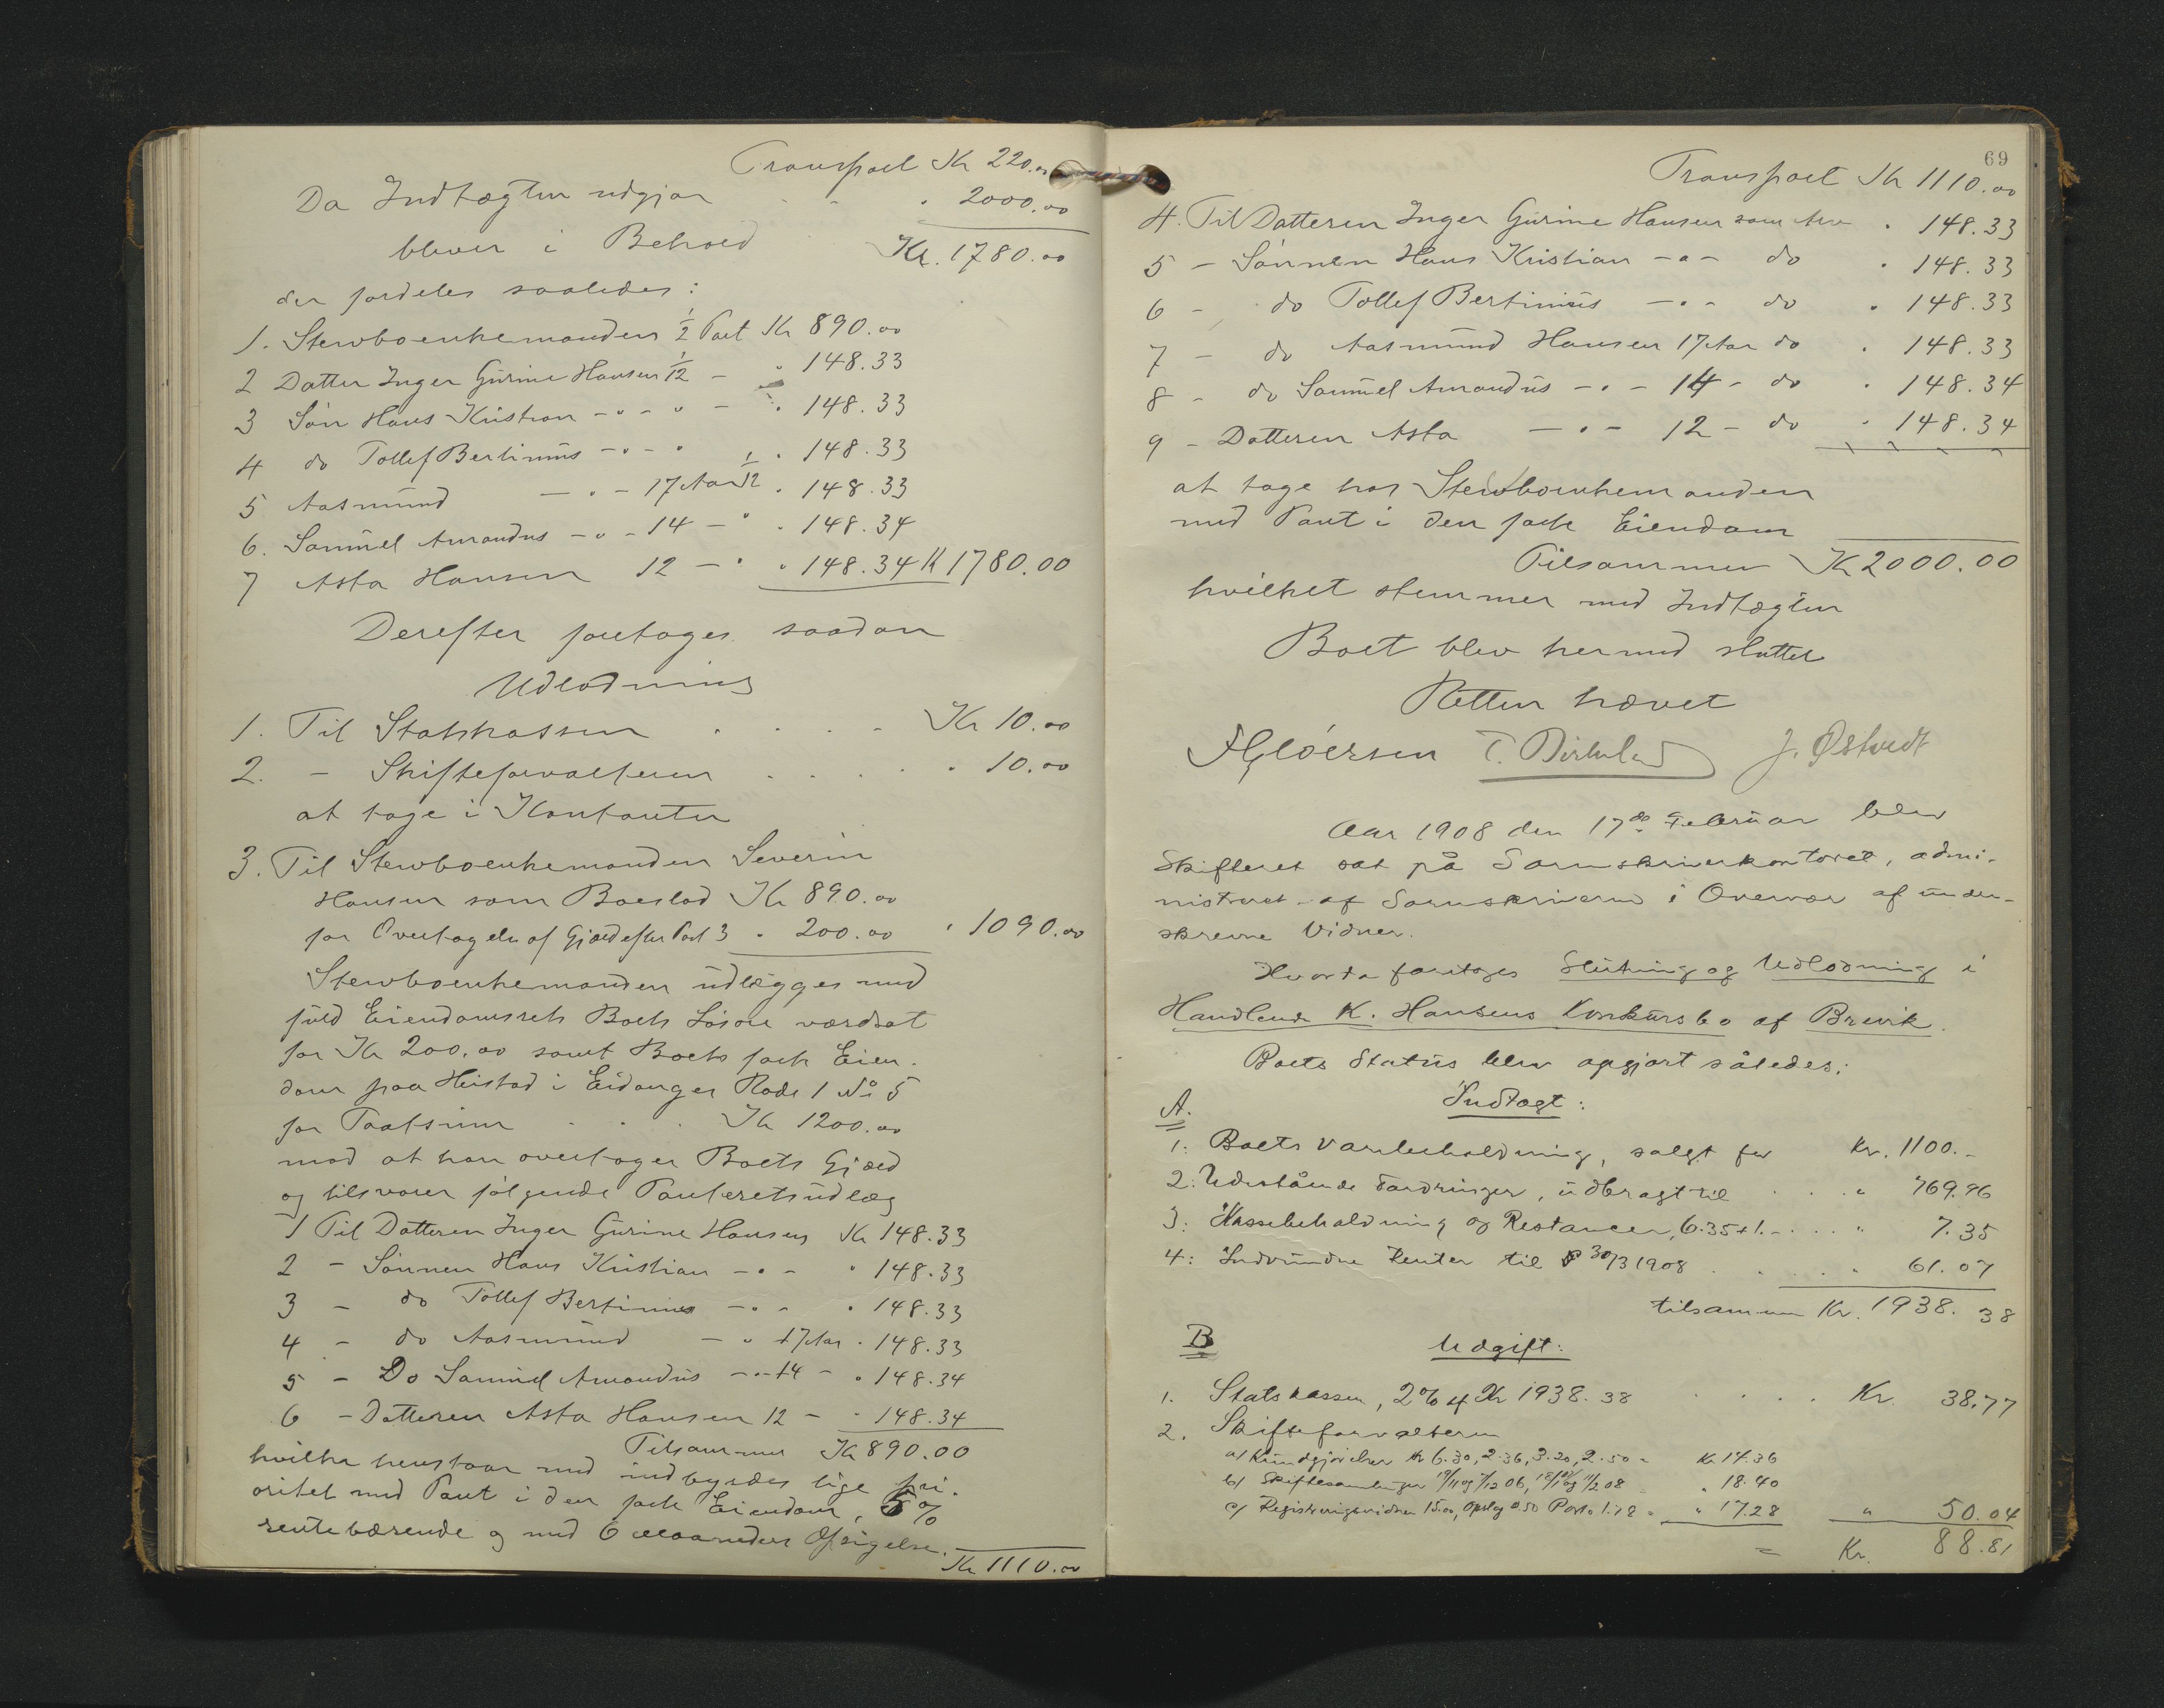 Transport Kr 220.00
Da Indtægten udgjør . . " 2000.00
bliver i Behold Kr. 1780.00
der fordeles saaledes:
1. Stervboenkemanden 1/2 Part Kr 890.00
2 Datter Inger Gurine Hansen 1/12 - " 148.33
3 Søn Hans Kristian - " - " - " 148.33
4 do Tollef Bertinius - " - " " 148.33
5 Aasmund - " - 17 Aar 1/12 " 148.33
6. Samuel Amandus - " - 14 - " " 148.34
7 Asta Hansen 12 - " " 148.34 K 1780.00
Derefter foretages saadan
Udlodning
1. Til Statskassen . . . . Kr 10.00
2. - Skifteforvalteren . . . . " 10.00
at tage i Kontanter
3. Til Stervboenkemanden Severin
Hansen som Boeslod Kr 890.00
for Overtagelse af Gjæld efter Post 3 " 200.00 " 1090.00
Stervboenkemanden udlægges med
fuld Eiendomsret Boets Løsøre værdsat
for Kr 200.00 samt Boets faste Eien-
dom paa Heistad i Eidanger Rode 1 No 5
for Taxtsum . . . Kr 1200.00
mod at han overtager Boets Gjæld
og tilsvarer følgende Panteretsudlæg
1 Til Datteren Inger Gurine Hansen Kr 148.33
2 - Sønnen Hans Kristian - " - " 148.33
3 - do Tollef Bertinius - " - " 148.33
4 - do Aasmund - " 17 Aar " 148.33
5 - Do Samuel Amandus - " - 14 - " 148.34
6 - Datteren Asta Hansen 12 - " 148.34
Tilsammen Kr 890.00
hvilke henstaar med indbyrdes lige pri-
oritet med Pant i den faste Eiendom, 5%
rentebærende og med 6 Maaneders Opsigelse.
Kr 1110.00
69
Transport Kr 1110.00
4. Til Datteren Inger Gurine Hansen som Arv " 148.33
5 - Sønnen Hans Kristian - " - do " 148.33
6 - do Tollef Bertinius - " - do " 148.33
7 - do Aasmund Hansen 17 Aar do " 148.33
8 - do Samuel Amandus - " - 14 - do " 148.34
9 - Datteren Asta - " - 12 - do " 148.34
at tage hos Stervboenkemanden
med Pant i den faste Eiendom
Tilsammen Kr 2000.00
hvilket stemmer med Indtægten
Boet blev hermed sluttet
Retten hævet
J. Østvedt
Aar 1908 den 17de Februar blev
Skifteret sat på Sorenskriverkontoret, admi-
nistreret af Sorenskriveren i Overvær af under-
skrevne Vidner.
Hvorda foretoges Slutning og Udlodning i
Handlende K. Hansens Konkursbo af Brevik.
Boets Status blev opgjort således:
A. Indtægt:
1: Boets Varebeholdning, solgt for Kr. 1100.-
2: Udestående Fordringer, udbragt til . . . " 769.96
3: Kassebeholdning og Restancer, 6.35+1.- . . . " 7.35
4: Indvundne Renter til 30/3 1908 . . . . " 61.07
tilsammen Kr. 1938.38
B Udgift:
1. Statskassen, 2% af Kr 1938.38 . . . . Kr. 38,77
2. Skifteforvalteren
a/ Kundgjørelser Kr 6.30, 2.36, 3.20, 2.50 = Kr. 14.36
b/ Skiftesamlinger = " 18.40
c/ Registreringsvidner 15.00, Opslag 0.50 Porto 1.78 = " 17.28 " 50.04
= Kr. 88.81